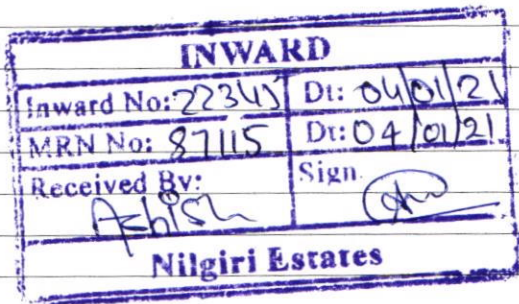 INWARD
Inward No: 22345 Dt: 04/01/21
MRN No: 87115 Dt: 04/01/21
Received By: Sign
Ashish
Nilgiri Estates